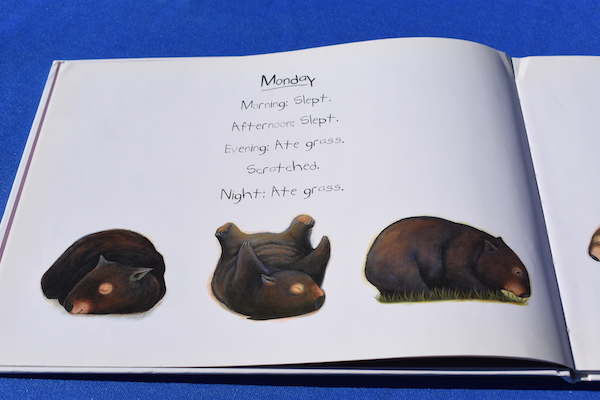 Monday
Morning: Slept.
Afternoon: Slept.
Evening: Ate grass.
Scratched.
Night: Ate grass.